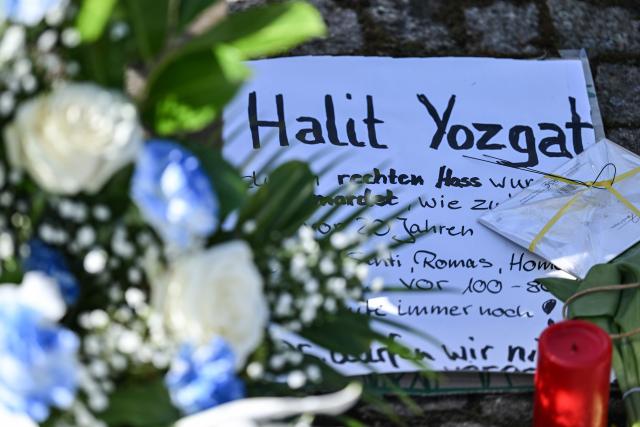 Halit Yozgat
rechten Hass wur
mordet, wie zu
vor 20 Jahren
nti, Romas, Hom
vor 100-80
te immer noch!
dürfen wir ni